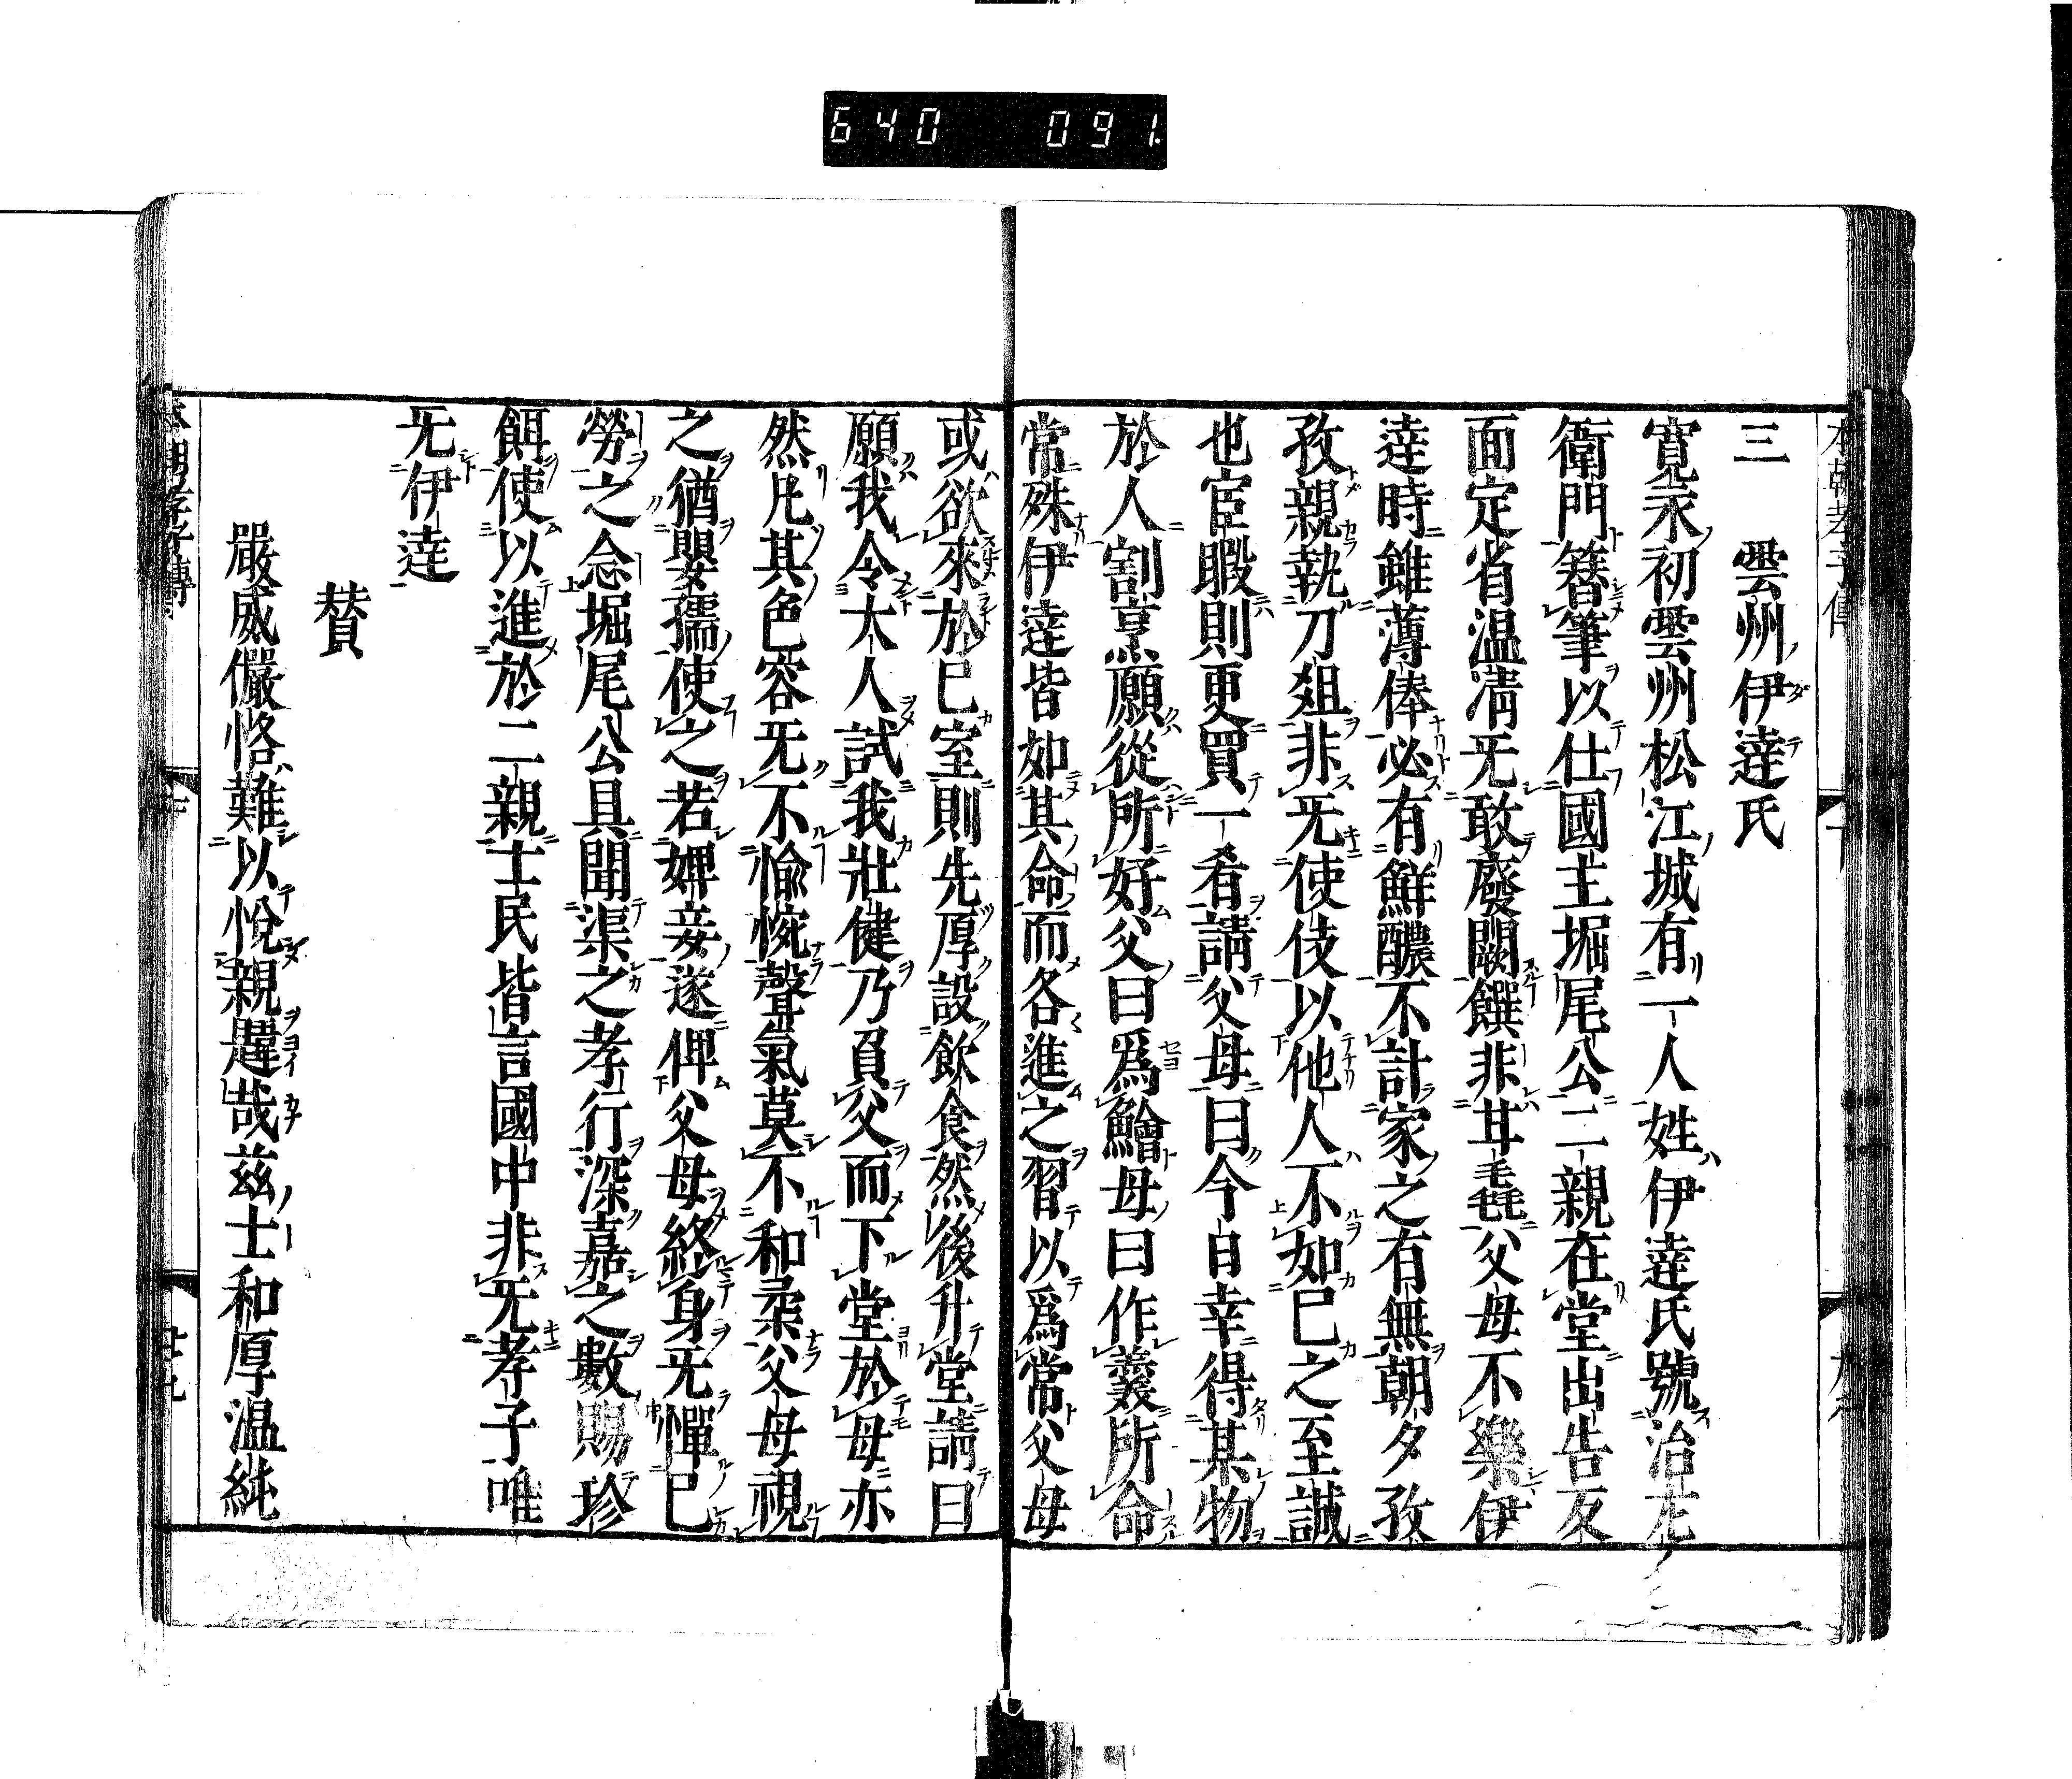 640 091
三 雲州伊達氏
寛永初雲州松江城有一人姓伊達氏號治左
衛門簪筆以仕國主堀尾公二親在堂出告反
面定省温凊旡敢廢闕饌非甘毳父母不樂伊
達時雖薄俸必有鮮醲不計家之有無朝夕孜
孜親執刀俎非旡使伎以他人不如已之至誠
也宦暇則更買一肴請父母曰今日幸得某物
於人割烹願從所好父曰爲鱠母曰作羹所命
常殊伊達皆如其命而各進之習以爲常父母
或欲來於已室則先厚設飲食然後升堂請曰
願我令大人試我壯健乃負父而下堂於母亦
然凡其色容旡不愉惋聲氣莫不和柔父母視
之猶嬰孺使之若婢妾遂俾父母終身旡憚已
勞之念堀尾公具聞渠之孝行深嘉之數賜珍
餌使以進於二親士民皆言國中非旡孝子唯
旡伊達
賛
嚴威儼恪難以悅親韙哉茲士和厚温純